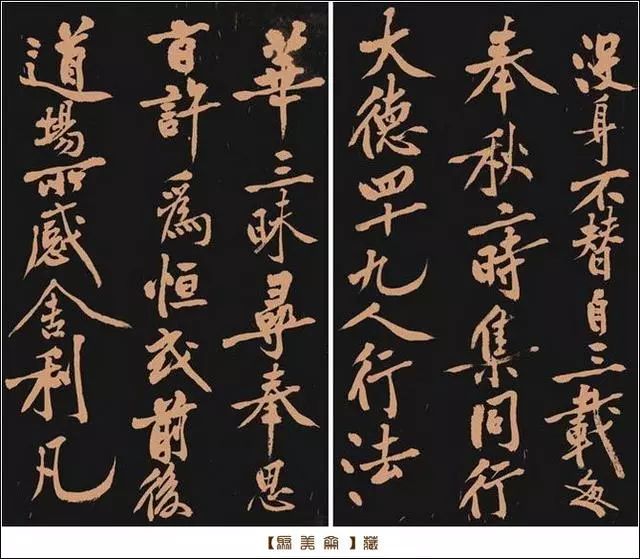 没身不替自三載每
奉秋二時集同行
大德四十九人行法
華三昧尋奉思
旨許爲恒式前後
道場所感舍利凡
【美齋】藏